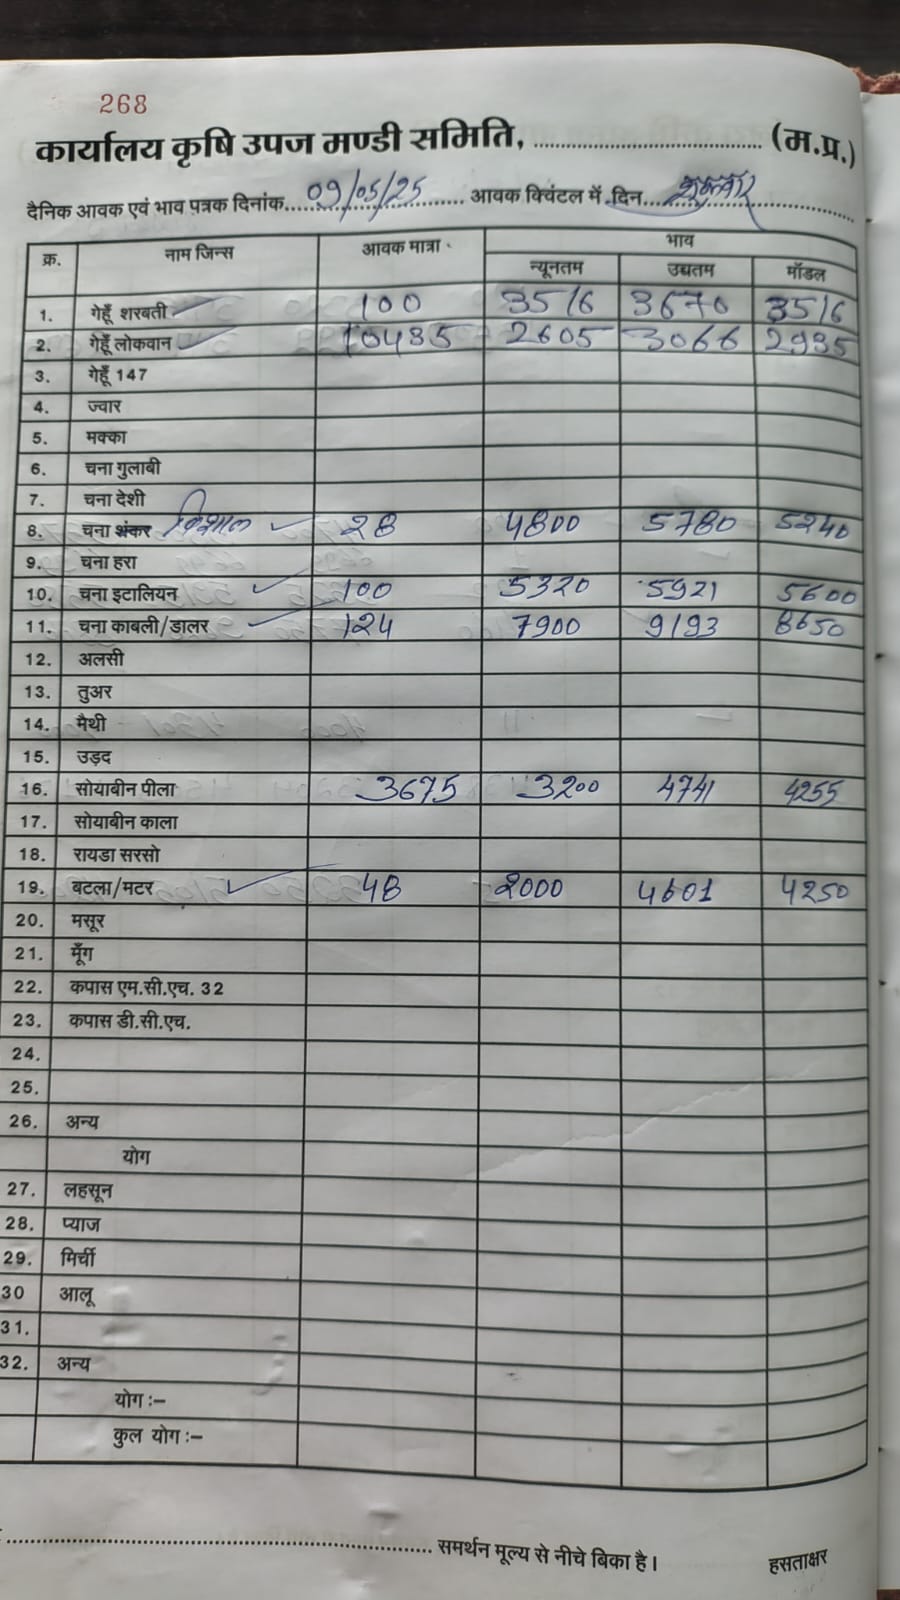 268
कार्यालय कृषि उपज मण्डी समिति, .................................. (म.प्र.)
दैनिक आवक एवं भाव पत्रक दिनांक....09/05/25.... आवक क्विंटल में दिन....शुक्रवार....
क्र. नाम जिन्स आवक मात्रा भाव
न्यूनतम उच्चतम मॉडल
1. गेहूँ शरबती 100 3516 3670 3516
2. गेहूँ लोकवान 10435 2605 3066 2935
3. गेहूँ 147
4. ज्वार
5. मक्का
6. चना गुलाबी
7. चना देशी
8. चना शंकर विशाल 28 4800 5780 5240
9. चना हरा
10. चना इटालियन 100 5320 5921 5600
11. चना काबली/डालर 124 7900 9193 8650
12. अलसी
13. तुअर
14. मैथी
15. उड़द
16. सोयाबीन पीला 3675 3200 4741 4255
17. सोयाबीन काला
18. रायडा सरसो
19. बटला/मटर 48 2000 4601 4250
20. मसूर
21. मूँग
22. कपास एम.सी.एच. 32
23. कपास डी.सी.एच.
24.
25.
26. अन्य
योग
27. लहसून
28. प्याज
29. मिर्ची
30 आलू
31.
32. अन्य
योग :–
कुल योग :–
.................................. समर्थन मूल्य से नीचे बिका है।
हसताक्षर